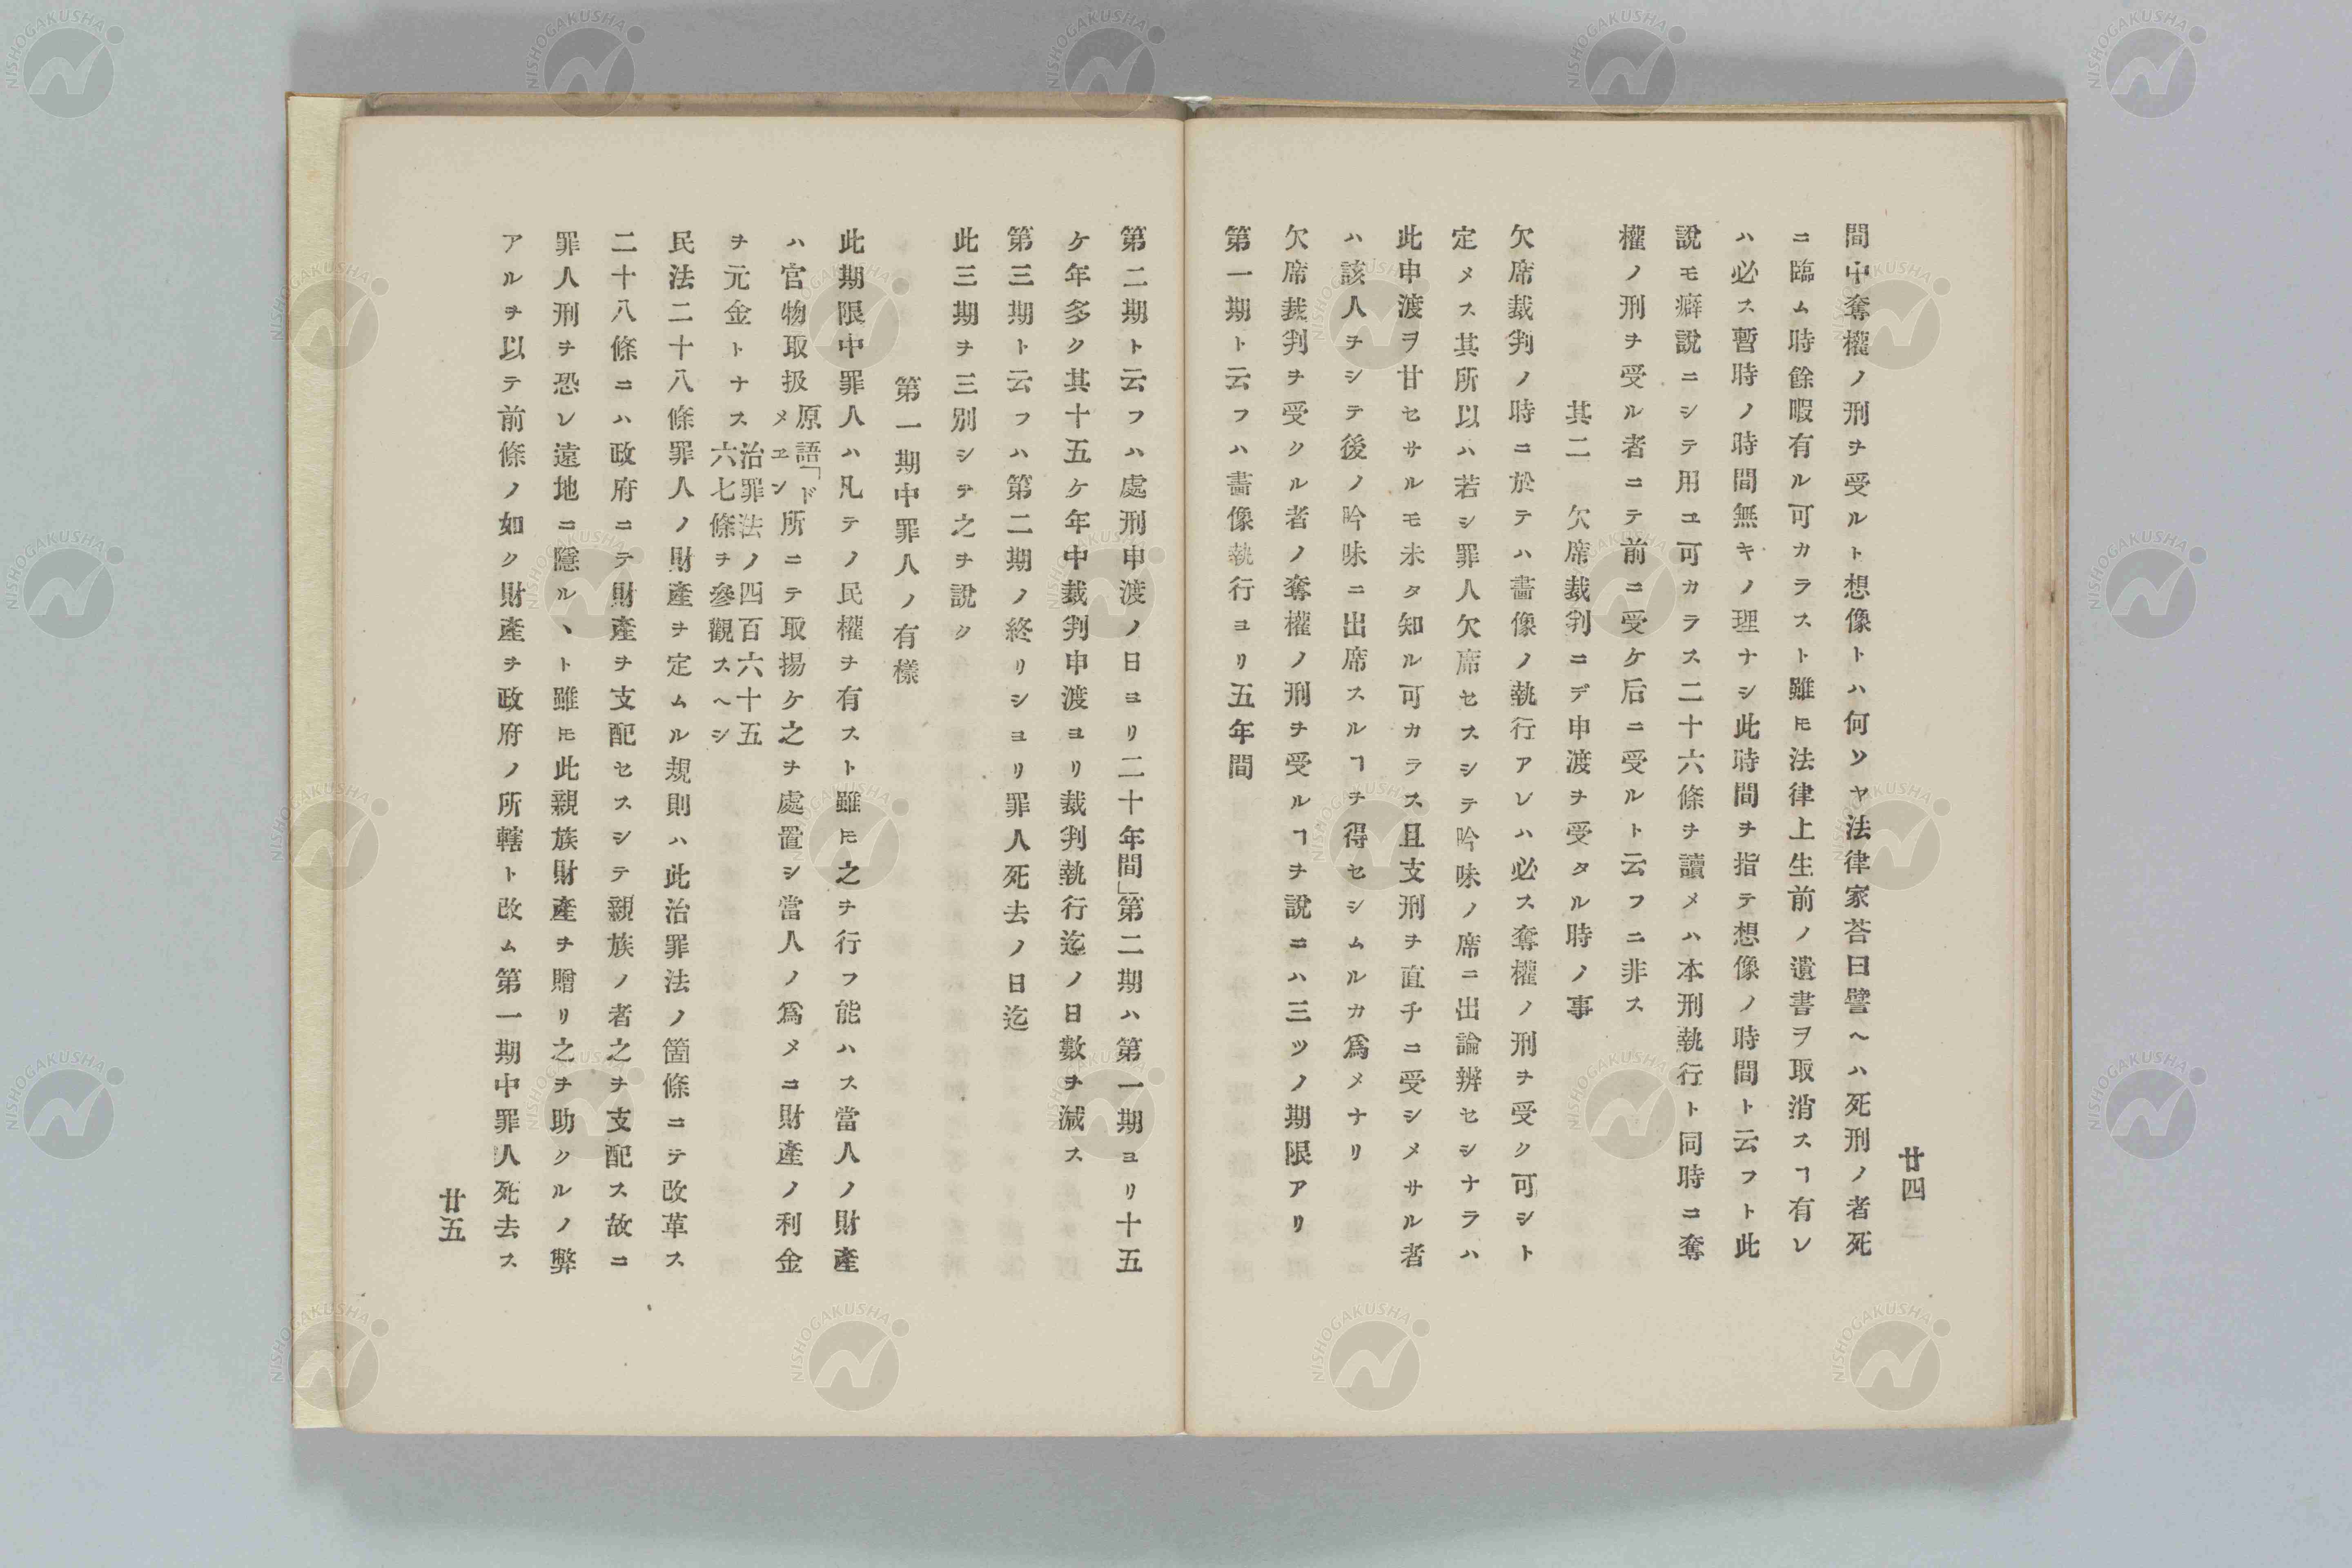 廿四
間中奪權ノ刑ヲ受ルト想像トハ何ソヤ法律家荅曰譬ヘハ死刑ノ者死
ニ臨ム時餘暇有ル可カラスト雖𪜈法律上生前ノ遺書ヲ取消スヿ有レ
ハ必ス暫時ノ時間無キノ理ナシ此時間ヲ指テ想像ノ時間ト云フト此
說モ癖說ニシテ用ユ可カラス二十六條ヲ讀メハ本刑執行ト同時ニ奪
權ノ刑ヲ受ル者ニテ前ニ受ケ后ニ受ルト云フニ非ス
其二 欠席裁判ニテ申渡ヲ受タル時ノ事
欠席裁判ノ時ニ於テハ畵像ノ執行アレハ必ス奪權ノ刑ヲ受ク可シト
定メス其所以ハ若シ罪人欠席セスシテ吟味ノ席ニ出論辨セシナラハ
此申渡ヲ甘セサルモ未タ知ル可カラス且支刑ヲ直チニ受シメサル者
ハ該人ヲシテ後ノ吟味ニ出席スルヿヲ得セシムルカ爲メナリ
欠席裁判ヲ受クル者ノ奪權ノ刑ヲ受ルヿヲ說ニハ三ツノ期限アリ
第一期ト云フハ畵像執行ヨリ五年間
第二期ト云フハ處刑申渡ノ日ヨリ二十年間」第二期ハ第一期ヨリ十五
ケ年多ク其十五ケ年中裁判申渡ヨリ裁判執行迄ノ日數ヲ減ス
第三期ト云フハ第二期ノ終リシヨリ罪人死去ノ日迄
此三期ヲ三別シテ之ヲ說ク
第一期中罪人ノ有樣
此期限中罪人ハ凡テノ民權ヲ有スト雖𪜈之ヲ行フ能ハス當人ノ財產
ハ官物取扱原語「ドメヱン所ニテ取揚ケ之ヲ處置シ當人ノ爲メニ財產ノ利金
ヲ元金トナス治罪法ノ四百六十五六七條ヲ參觀スヘシ
民法二十八條罪人ノ財產ヲ定ムル規則ハ此治罪法ノ箇條ニテ改革ス
二十八條ニハ政府ニテ財產ヲ支配セスシテ親族ノ者之ヲ支配ス故ニ
罪人刑ヲ恐レ遠地ニ隱ルヽト雖𪜈此親族財產ヲ贈リ之ヲ助クルノ弊
アルヲ以テ前條ノ如ク財產ヲ政府ノ所轄ト改ム第一期中罪人死去ス
廿五